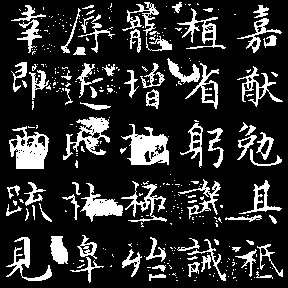 嘉猷勉其祗
植省躬譏誡
寵增抗極殆
辱近恥林皐
幸即兩疏見